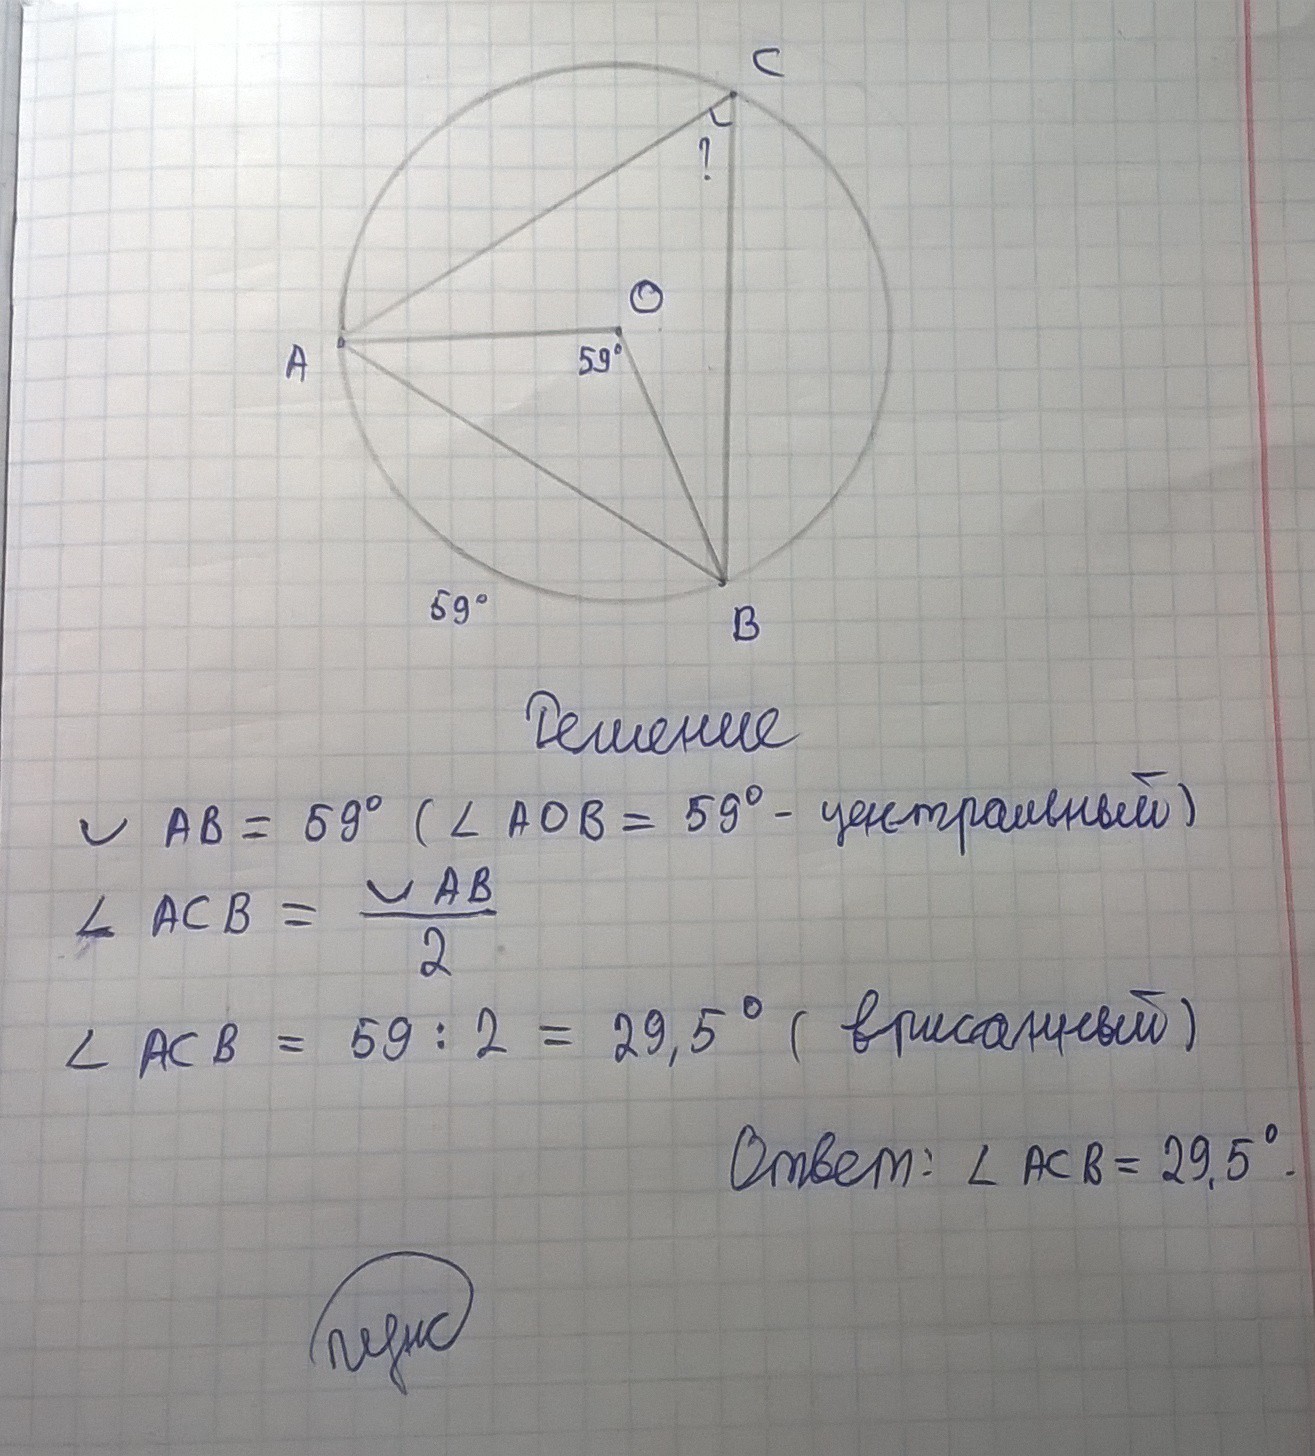 C
?
O
A
59°
59°
B
Решение
◡ AB = 59° (∠ AOB = 59° - центральный)
∠ ACB = ◡ AB / 2
∠ ACB = 59 : 2 = 29,5° (вписанный)
Ответ: ∠ ACB = 29,5°.